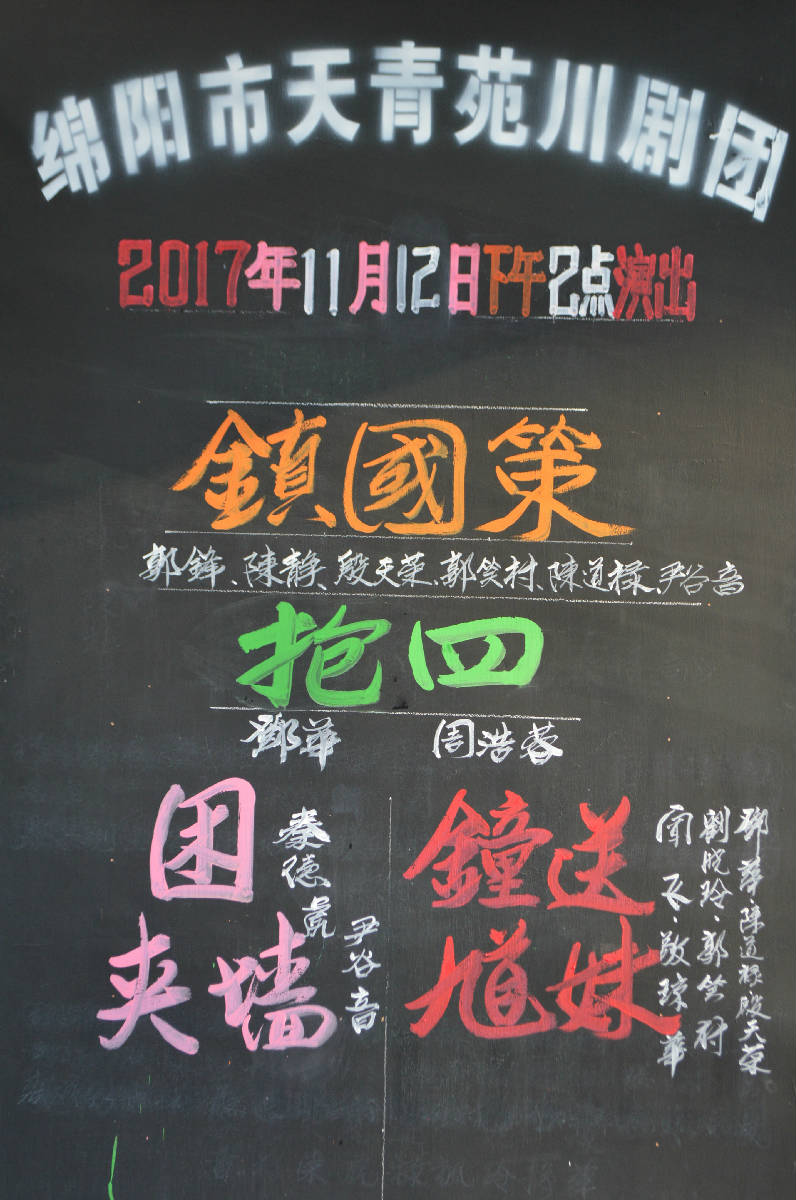 绵阳市天青苑川剧团
2017年11月12日下午2点演出
鎮國策
郭鋒、陳静、殷天荣、郭笑村、陳道禄、尹谷音
抱四
鄧華 周浩蓉
困
夹墙
秦德虎
尹谷音
鐘送
馗妹
鄧華、陳道禄、殷天荣
劉晓玲、郭笑村
飞、敬琼華